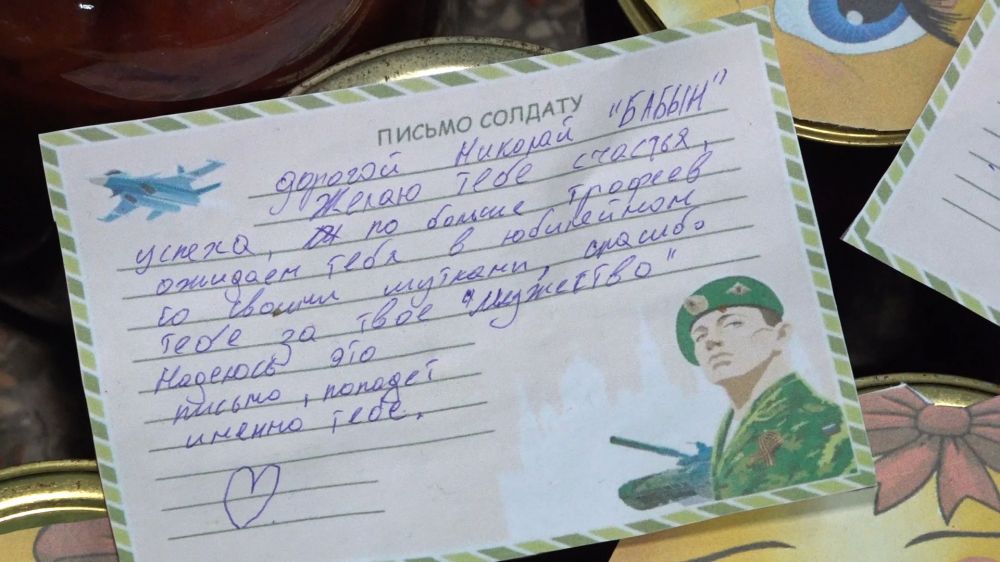 ПИСЬМО СОЛДАТУ
дорогой Николай "БАБЫН"
Желаю тебе счастья,
успеха, по больше трофеев
ожидаем тебя в юбилейном
со своими шутками, спасибо
тебе за твое "мужество"
Надеюсь это
письмо, попадет
именно тебе.